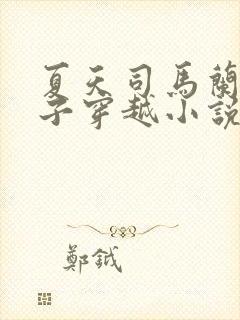 夏天司馬蘭
子穿越小說
鄭鉞